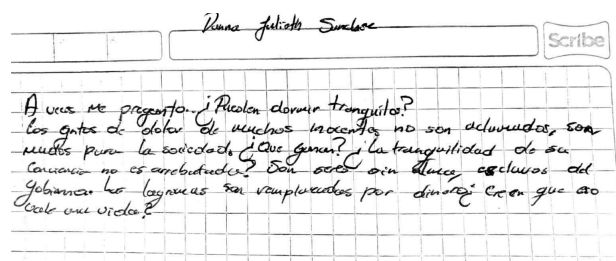 Danna Julieth
Scribe
A veces me pregunto.. ¿Pueden dormir tranquilos?
Los gritos de dolor de muchos inocentes no son aclamados, son
mudos para la sociedad, ¿Que ganan? ¿La tranquilidad de su
conciencia no es arrebatada? Son seres sin alma, esclavos del
gobierno. Las lagrimas son remplazadas por dinero ¿Creen que eso
vale una vida?